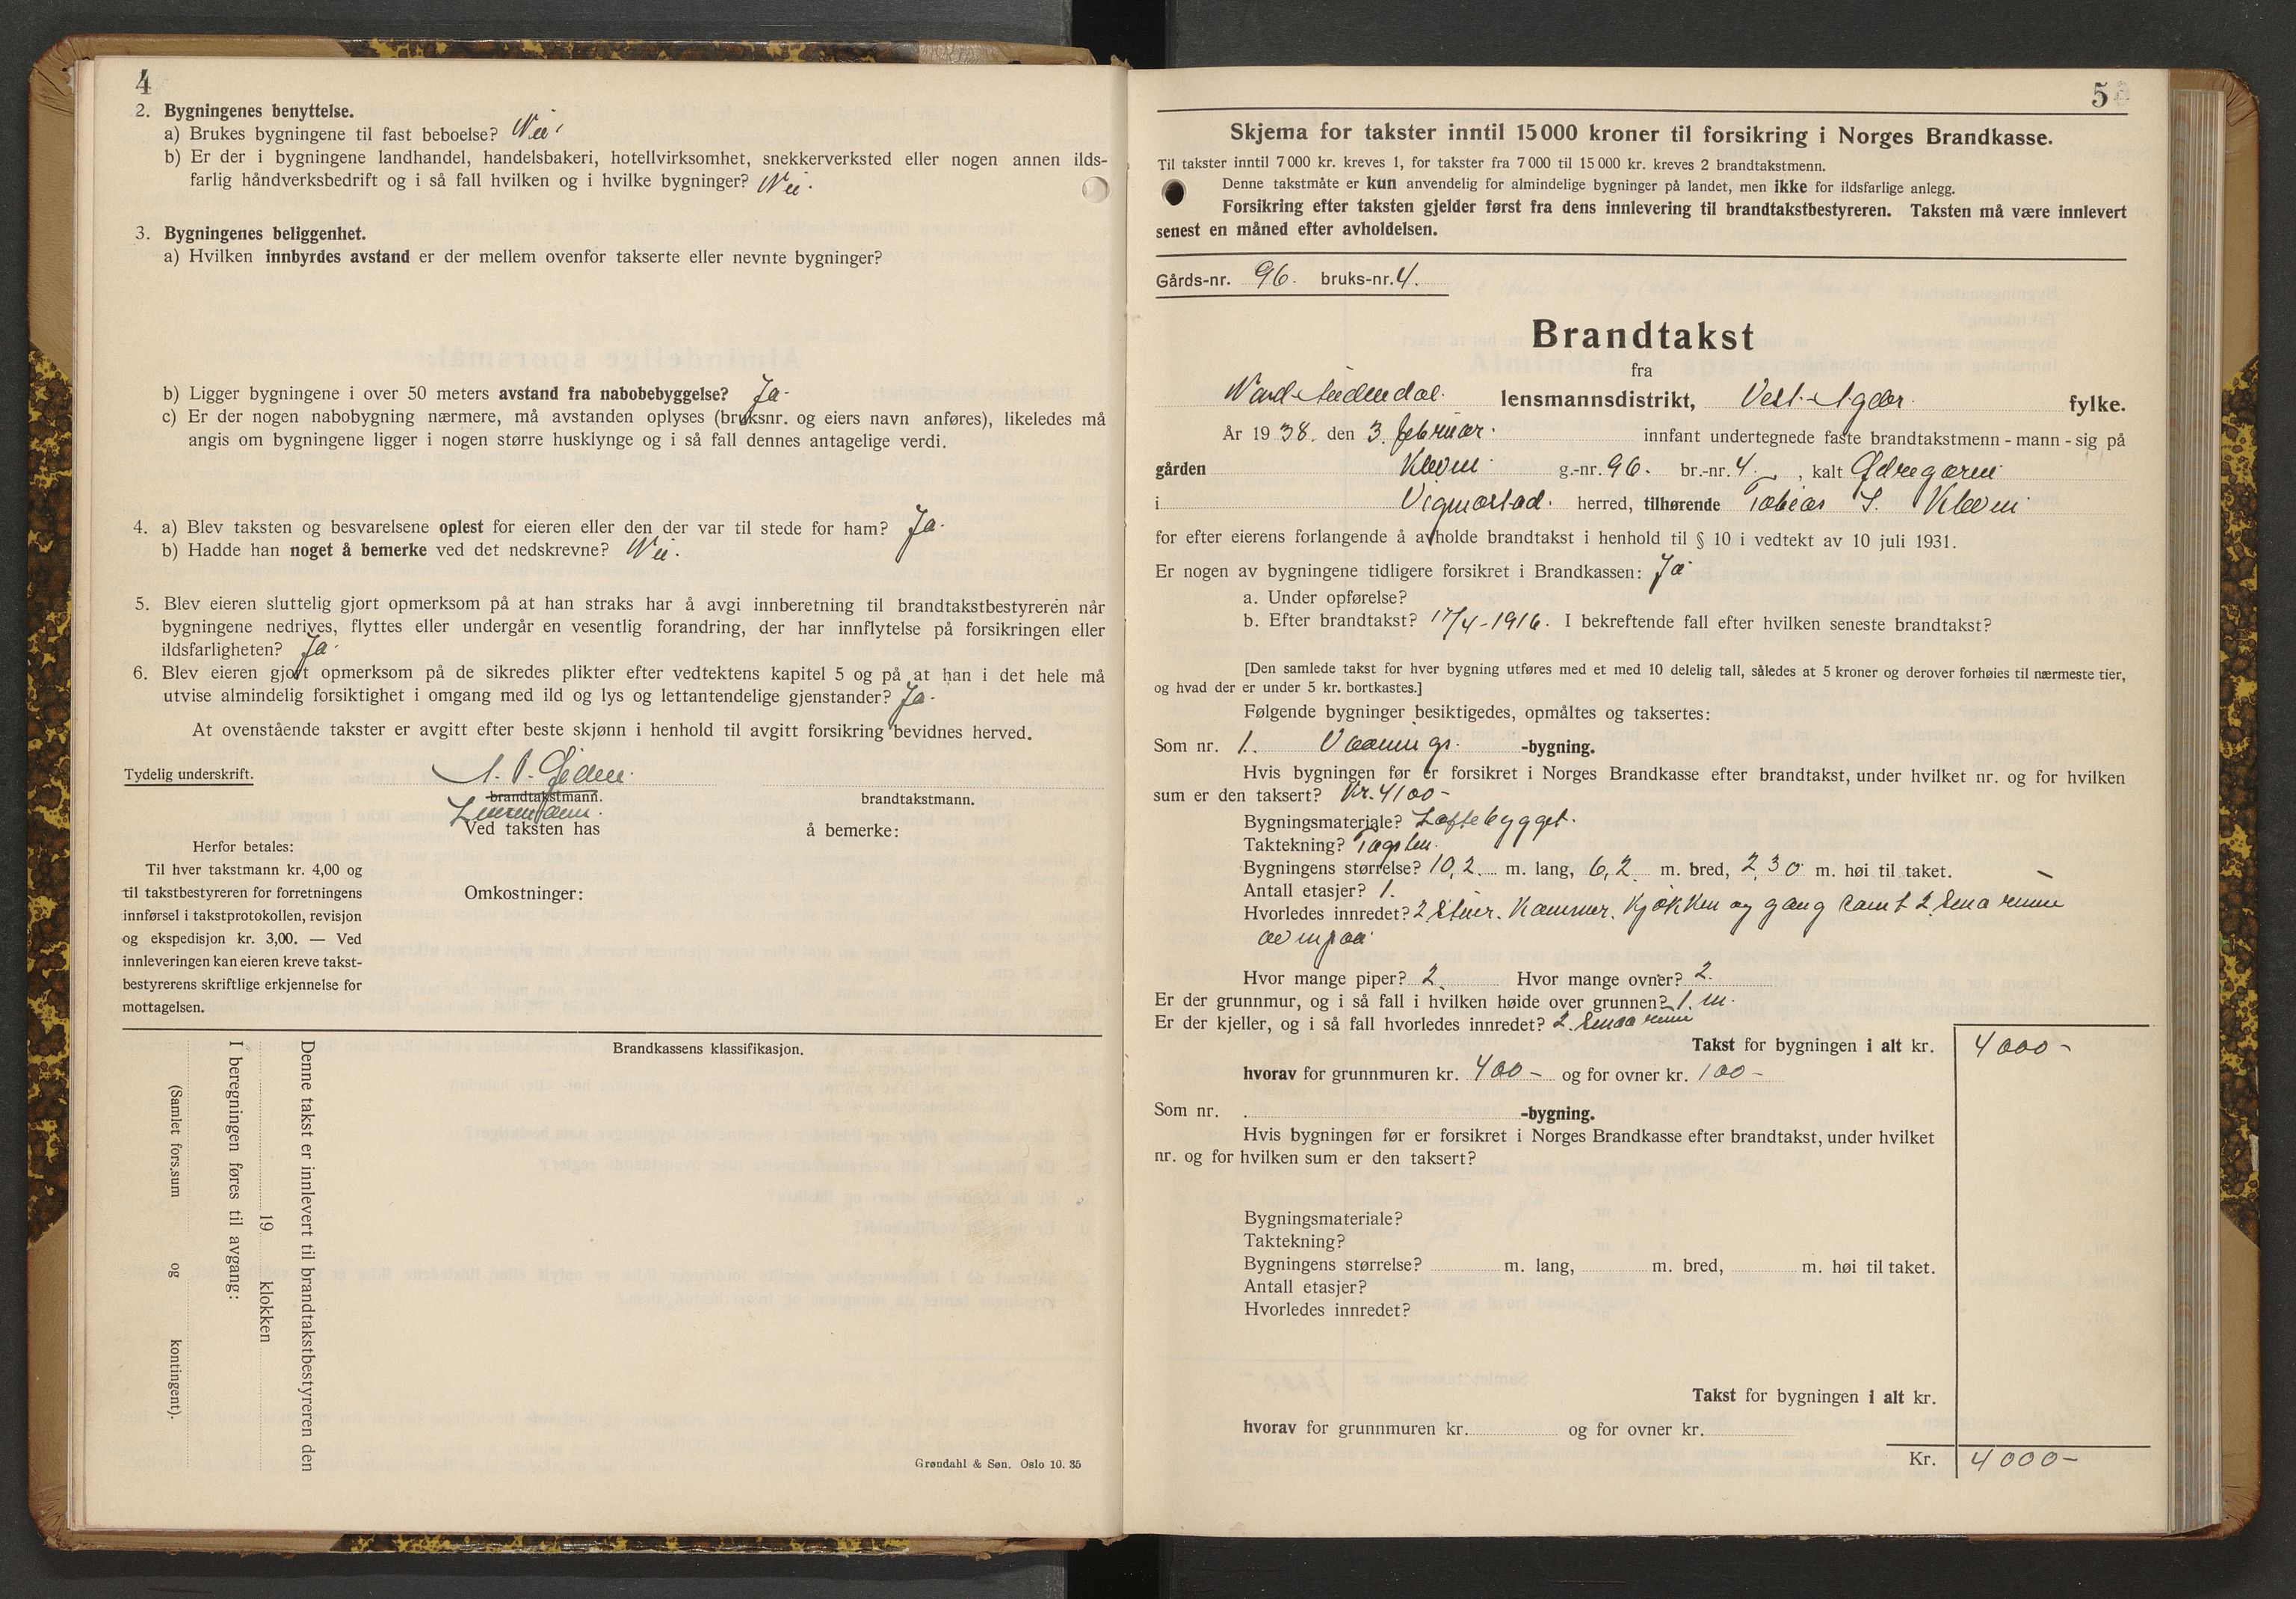 4
2. Bygningenes benyttelse.
a) Brukes bygningene til fast beboelse? Nei.
b) Er der i bygningene landhandel, handelsbakeri, hotellvirksomhet, snekkerverksted eller nogen annen ilds-
farlig håndverksbedrift og i så fall hvilken og i hvilke bygninger? Nei.
3. Bygningenes beliggenhet.
a) Hvilken innbyrdes avstand er der mellem ovenfor takserte eller nevnte bygninger?
b) Ligger bygningene i over 50 meters avstand fra nabobebyggelse? Ja.
c) Er der nogen nabobygning nærmere, må avstanden oplyses (bruksnr. og eiers navn anføres), likeledes må
angis om bygningene ligger i nogen større husklynge og i så fall dennes antagelige verdi.
4. a) Blev taksten og besvarelsene oplest for eieren eller den der var til stede for ham? Ja.
b) Hadde han noget å bemerke ved det nedskrevne? Nei.
5. Blev eieren sluttelig gjort opmerksom på at han straks har å avgi innberetning til brandtakstbestyreren når
bygningene nedrives, flyttes eller undergår en vesentlig forandring, der har innflytelse på forsikringen eller
ildsfarligheten? Ja.
6. Blev eieren gjort opmerksom på de sikredes plikter efter vedtektens kapitel 5 og på at han i det hele må
utvise almindelig forsiktighet i omgang med ild og lys og lettantendelige gjenstander? Ja.
At ovenstående takster er avgitt efter beste skjønn i henhold til avgitt forsikring bevidnes herved.
Tydelig underskrift.
brandtakstmann. brandtakstmann.
Lensmann.
Ved taksten has å bemerke:
Herfor betales:
Til hver takstmann kr. 4,00 og
til takstbestyreren for forretningens
innførsel i takstprotokollen, revisjon
og ekspedisjon kr. 3,00. — Ved
innleveringen kan eieren kreve takst-
bestyrerens skriftlige erkjennelse for
mottagelsen.
Omkostninger:
Brandkassens klassifikasjon.
Denne takst er innlevert til brandtakstbestyreren den
19 klokken
I beregningen føres til avgang:
(Samlet fors.sum og kontingent).
Grøndahl & Søn. Oslo 10. 35
5
Skjema for takster inntil 15 000 kroner til forsikring i Norges Brandkasse.
Til takster inntil 7 000 kr. kreves 1, for takster fra 7 000 til 15 000 kr. kreves 2 brandtakstmenn.
Denne takstmåte er kun anvendelig for almindelige bygninger på landet, men ikke for ildsfarlige anlegg.
Forsikring efter taksten gjelder først fra dens innlevering til brandtakstbestyreren. Taksten må være innlevert
senest en måned efter avholdelsen.
Gårds-nr. 96. bruks-nr. 4.
Brandtakst
fra
Nord-Audnedal lensmannsdistrikt, Vest-Agder fylke.
År 1938. den 3. februar. innfant undertegnede faste brandtakstmenn - mann - sig på
gården Kleven g.-nr. 96. br.-nr. 4. , kalt Ødregaren
i Vigmostad. herred, tilhørende Tobias S. Kleven
for efter eierens forlangende å avholde brandtakst i henhold til § 10 i vedtekt av 10 juli 1931.
Er nogen av bygningene tidligere forsikret i Brandkassen: Ja
a. Under opførelse?
b. Efter brandtakst? 17/4-1916. I bekreftende fall efter hvilken seneste brandtakst?
[Den samlede takst for hver bygning utføres med et med 10 delelig tall, således at 5 kroner og derover forhøies til nærmeste tier,
og hvad der er under 5 kr. bortkastes.]
Følgende bygninger besiktigedes, opmåltes og taksertes:
Som nr. 1. Vaanings -bygning.
Hvis bygningen før er forsikret i Norges Brandkasse efter brandtakst, under hvilket nr. og for hvilken
sum er den taksert? Kr. 4100-
Bygningsmateriale? Laftebygget.
Taktekning? Tagsten.
Bygningens størrelse? 10,2 m. lang, 6,2 m. bred, 2,30 m. høi til taket.
Antall etasjer? 1.
Hvorledes innredet? 2 stuer. Kammer. Kjøkken og gang samt 2 smaa rum
ovenpaa
Hvor mange piper? 2 Hvor mange ovner? 2.
Er der grunnmur, og i så fall i hvilken høide over grunnen? 1 m.
Er der kjeller, og i så fall hvorledes innredet? 2 smaa rum
Takst for bygningen i alt kr. 4000-
hvorav for grunnmuren kr. 400- og for ovner kr. 100-
Som nr. -bygning.
Hvis bygningen før er forsikret i Norges Brandkasse efter brandtakst, under hvilket
nr. og for hvilken sum er den taksert?
Bygningsmateriale?
Taktekning?
Bygningens størrelse? m. lang, m. bred, m. høi til taket.
Antall etasjer?
Hvorledes innredet?
Takst for bygningen i alt kr.
hvorav for grunnmuren kr. og for ovner kr.
Kr. 4000-